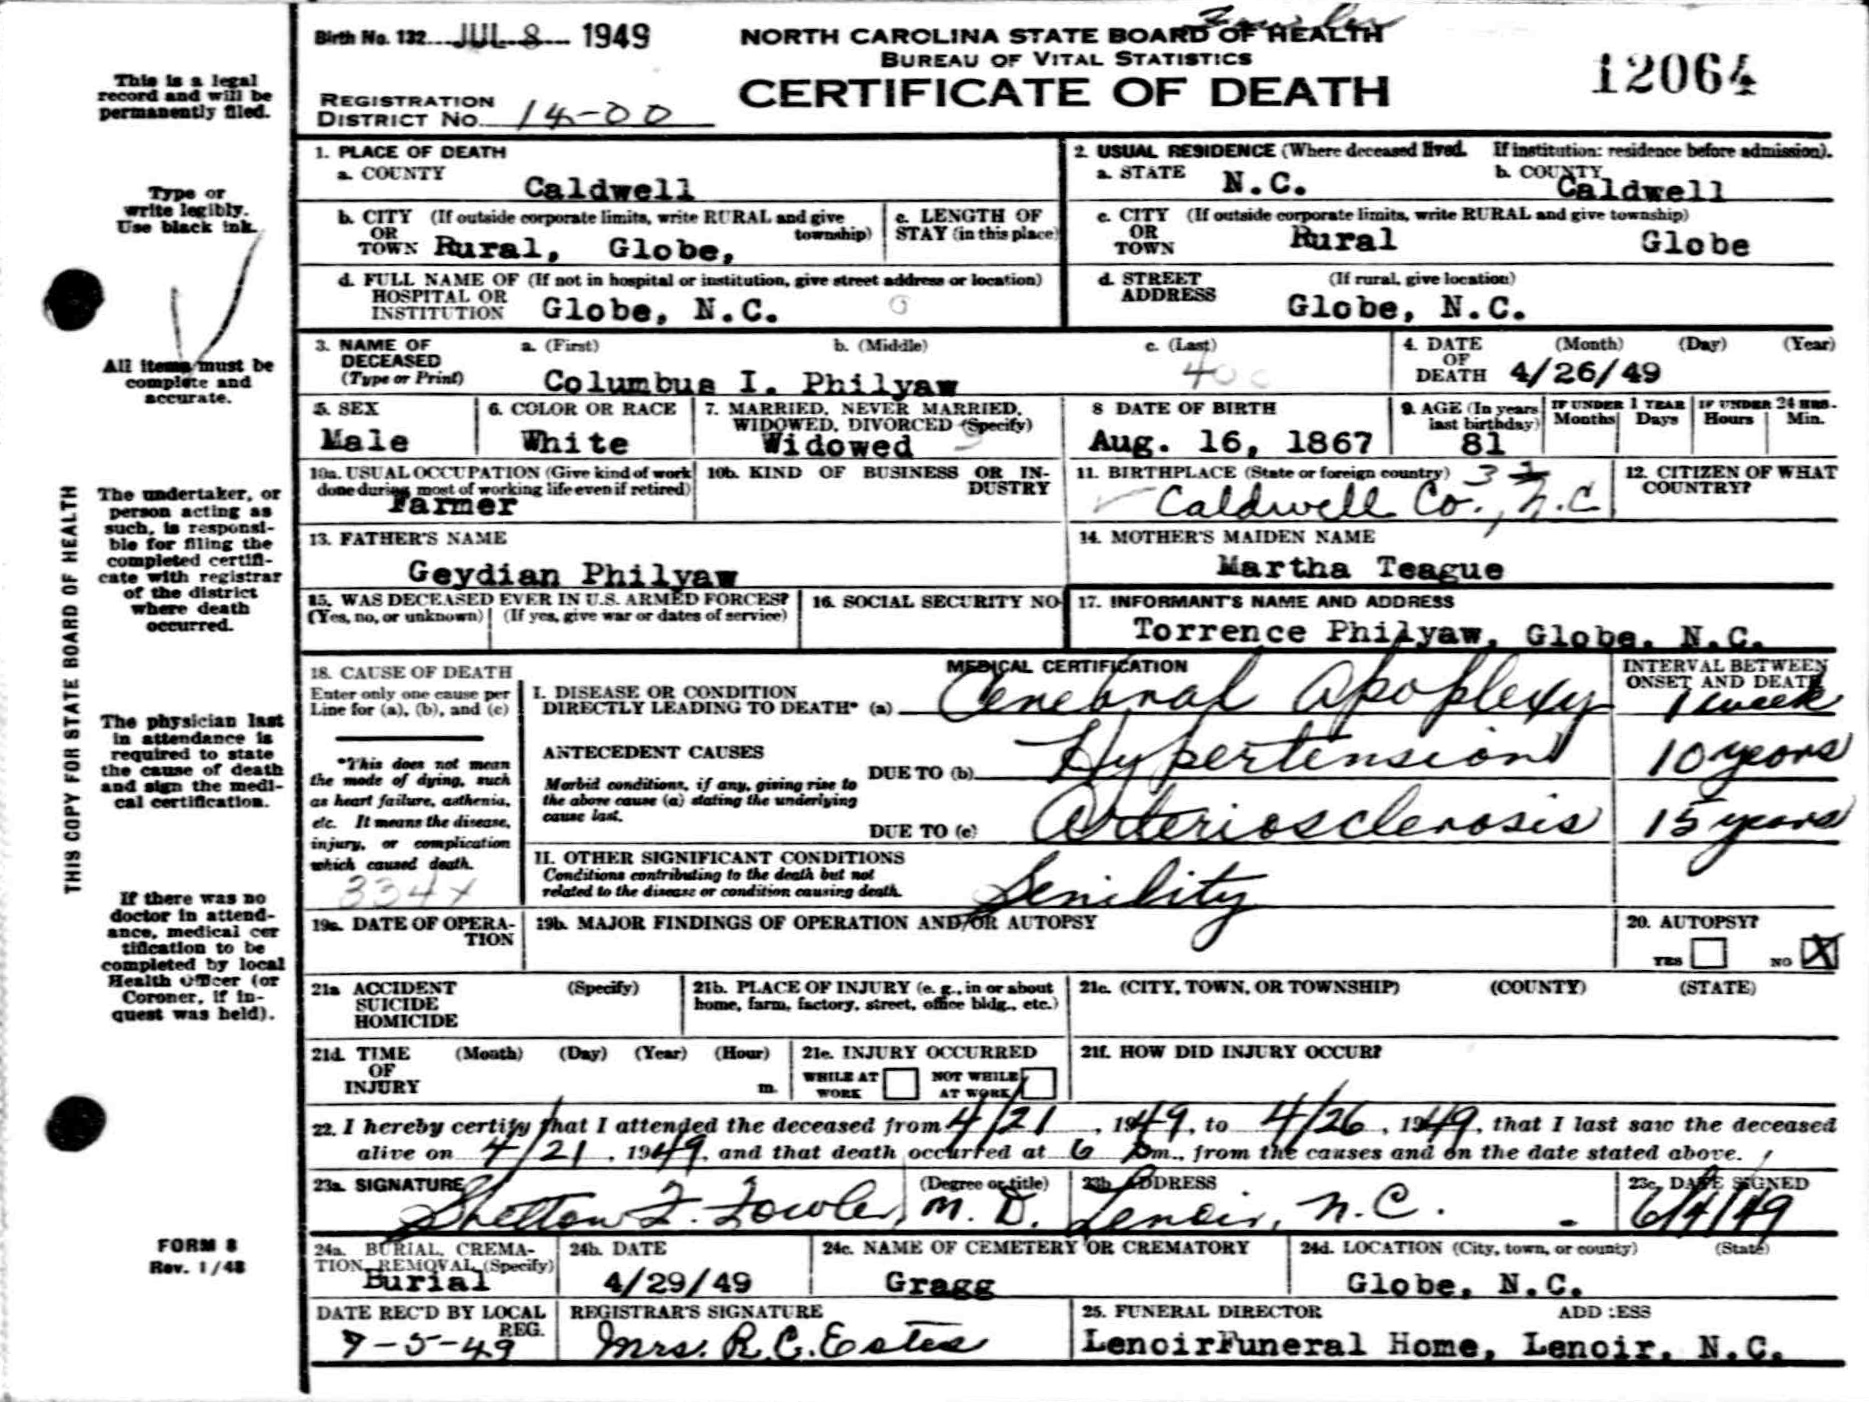 Fowler
Birth No. 132 JUL 8 1949
NORTH CAROLINA STATE BOARD OF HEALTH
BUREAU OF VITAL STATISTICS
CERTIFICATE OF DEATH
12064
REGISTRATION
DISTRICT No. 14-00
This is a legal
record and will be
permanently filed.
Type or
write legibly.
Use black ink.
All items must be
complete and
accurate.
The undertaker, or
person acting as
such, is responsi-
ble for filing the
completed certifi-
cate with registrar
of the district
where death
occurred.
The physician last
in attendance is
required to state
the cause of death
and sign the medi-
cal certification.
If there was no
doctor in attend-
ance, medical cer
tification to be
completed by local
Health Officer (or
Coroner, if in-
quest was held).
FORM 8
Rev. 1/48
THIS COPY FOR STATE BOARD OF HEALTH
1. PLACE OF DEATH
a. COUNTY
Caldwell
b. CITY (If outside corporate limits, write RURAL and give
OR township)
TOWN Rural, Globe,
c. LENGTH OF
STAY (in this place)
d. FULL NAME OF (If not in hospital or institution, give street address or location)
HOSPITAL OR
INSTITUTION Globe, N.C.
2. USUAL RESIDENCE (Where deceased lived. If institution: residence before admission).
a. STATE N.C. b. COUNTY Caldwell
c. CITY (If outside corporate limits, write RURAL and give township)
OR
TOWN Rural Globe
d. STREET (If rural, give location)
ADDRESS Globe, N.C.
3. NAME OF a. (First) b. (Middle) c. (Last)
DECEASED
(Type or Print) Columbus I. Philyaw
4. DATE (Month) (Day) (Year)
OF
DEATH 4/26/49
5. SEX
Male
6. COLOR OR RACE
White
7. MARRIED, NEVER MARRIED,
WIDOWED, DIVORCED (Specify)
Widowed
8 DATE OF BIRTH
Aug. 16, 1867
9. AGE (In years
last birthday)
81
IF UNDER 1 YEAR
Months Days
IF UNDER 24 HRS.
Hours Min.
10a. USUAL OCCUPATION (Give kind of work
done during most of working life even if retired)
Farmer
10b. KIND OF BUSINESS OR IN-
DUSTRY
11. BIRTHPLACE (State or foreign country)
Caldwell Co., N.C
12. CITIZEN OF WHAT
COUNTRY?
13. FATHER'S NAME
Geydian Philyaw
14. MOTHER'S MAIDEN NAME
Martha Teague
15. WAS DECEASED EVER IN U.S. ARMED FORCES?
(Yes, no, or unknown) (If yes, give war or dates of service)
16. SOCIAL SECURITY NO
17. INFORMANT'S NAME AND ADDRESS
Torrence Philyaw, Globe, N.C.
18. CAUSE OF DEATH
Enter only one cause per
Line for (a), (b), and (c)
*This does not mean
the mode of dying, such
as heart failure, asthenia,
etc. It means the disease,
injury, or complication
which caused death.
334x
MEDICAL CERTIFICATION
I. DISEASE OR CONDITION
DIRECTLY LEADING TO DEATH* (a) Cerebral Apoplexy
ANTECEDENT CAUSES
Morbid conditions, if any, giving rise to
the above cause (a) stating the underlying
cause last.
DUE TO (b) Hypertension
DUE TO (c) Arteriosclerosis
II. OTHER SIGNIFICANT CONDITIONS
Conditions contributing to the death but not
related to the disease or condition causing death.
Senility
INTERVAL BETWEEN
ONSET AND DEATH
1 week
10 years
15 years
19a. DATE OF OPERA-
TION
19b. MAJOR FINDINGS OF OPERATION AND/OR AUTOPSY
20. AUTOPSY?
YES NO X
21a ACCIDENT (Specify)
SUICIDE
HOMICIDE
21b. PLACE OF INJURY (e. g., in or about
home, farm, factory, street, office bldg., etc.)
21c. (CITY, TOWN, OR TOWNSHIP) (COUNTY) (STATE)
21d. TIME (Month) (Day) (Year) (Hour)
OF
INJURY m.
21e. INJURY OCCURRED
WHILE AT NOT WHILE
WORK AT WORK
21f. HOW DID INJURY OCCUR?
22. I hereby certify that I attended the deceased from 4/21, 1949, to 4/26, 1949, that I last saw the deceased
alive on 4/21, 1949, and that death occurred at 6 Pm., from the causes and on the date stated above.
23a. SIGNATURE (Degree or title)
Shelton F. Fowler, M.D.
23b. ADDRESS
Lenoir, N.C.
23c. DATE SIGNED
6/4/49
24a. BURIAL, CREMA-
TION, REMOVAL (Specify)
Burial
24b. DATE
4/29/49
24c. NAME OF CEMETERY OR CREMATORY
Gragg
24d. LOCATION (City, town, or county) (State)
Globe, N.C.
DATE REC'D BY LOCAL
REG.
7-5-49
REGISTRAR'S SIGNATURE
Mrs. R.C. Estes
25. FUNERAL DIRECTOR ADD :ESS
LenoirFuneral Home, Lenoir, N.C.